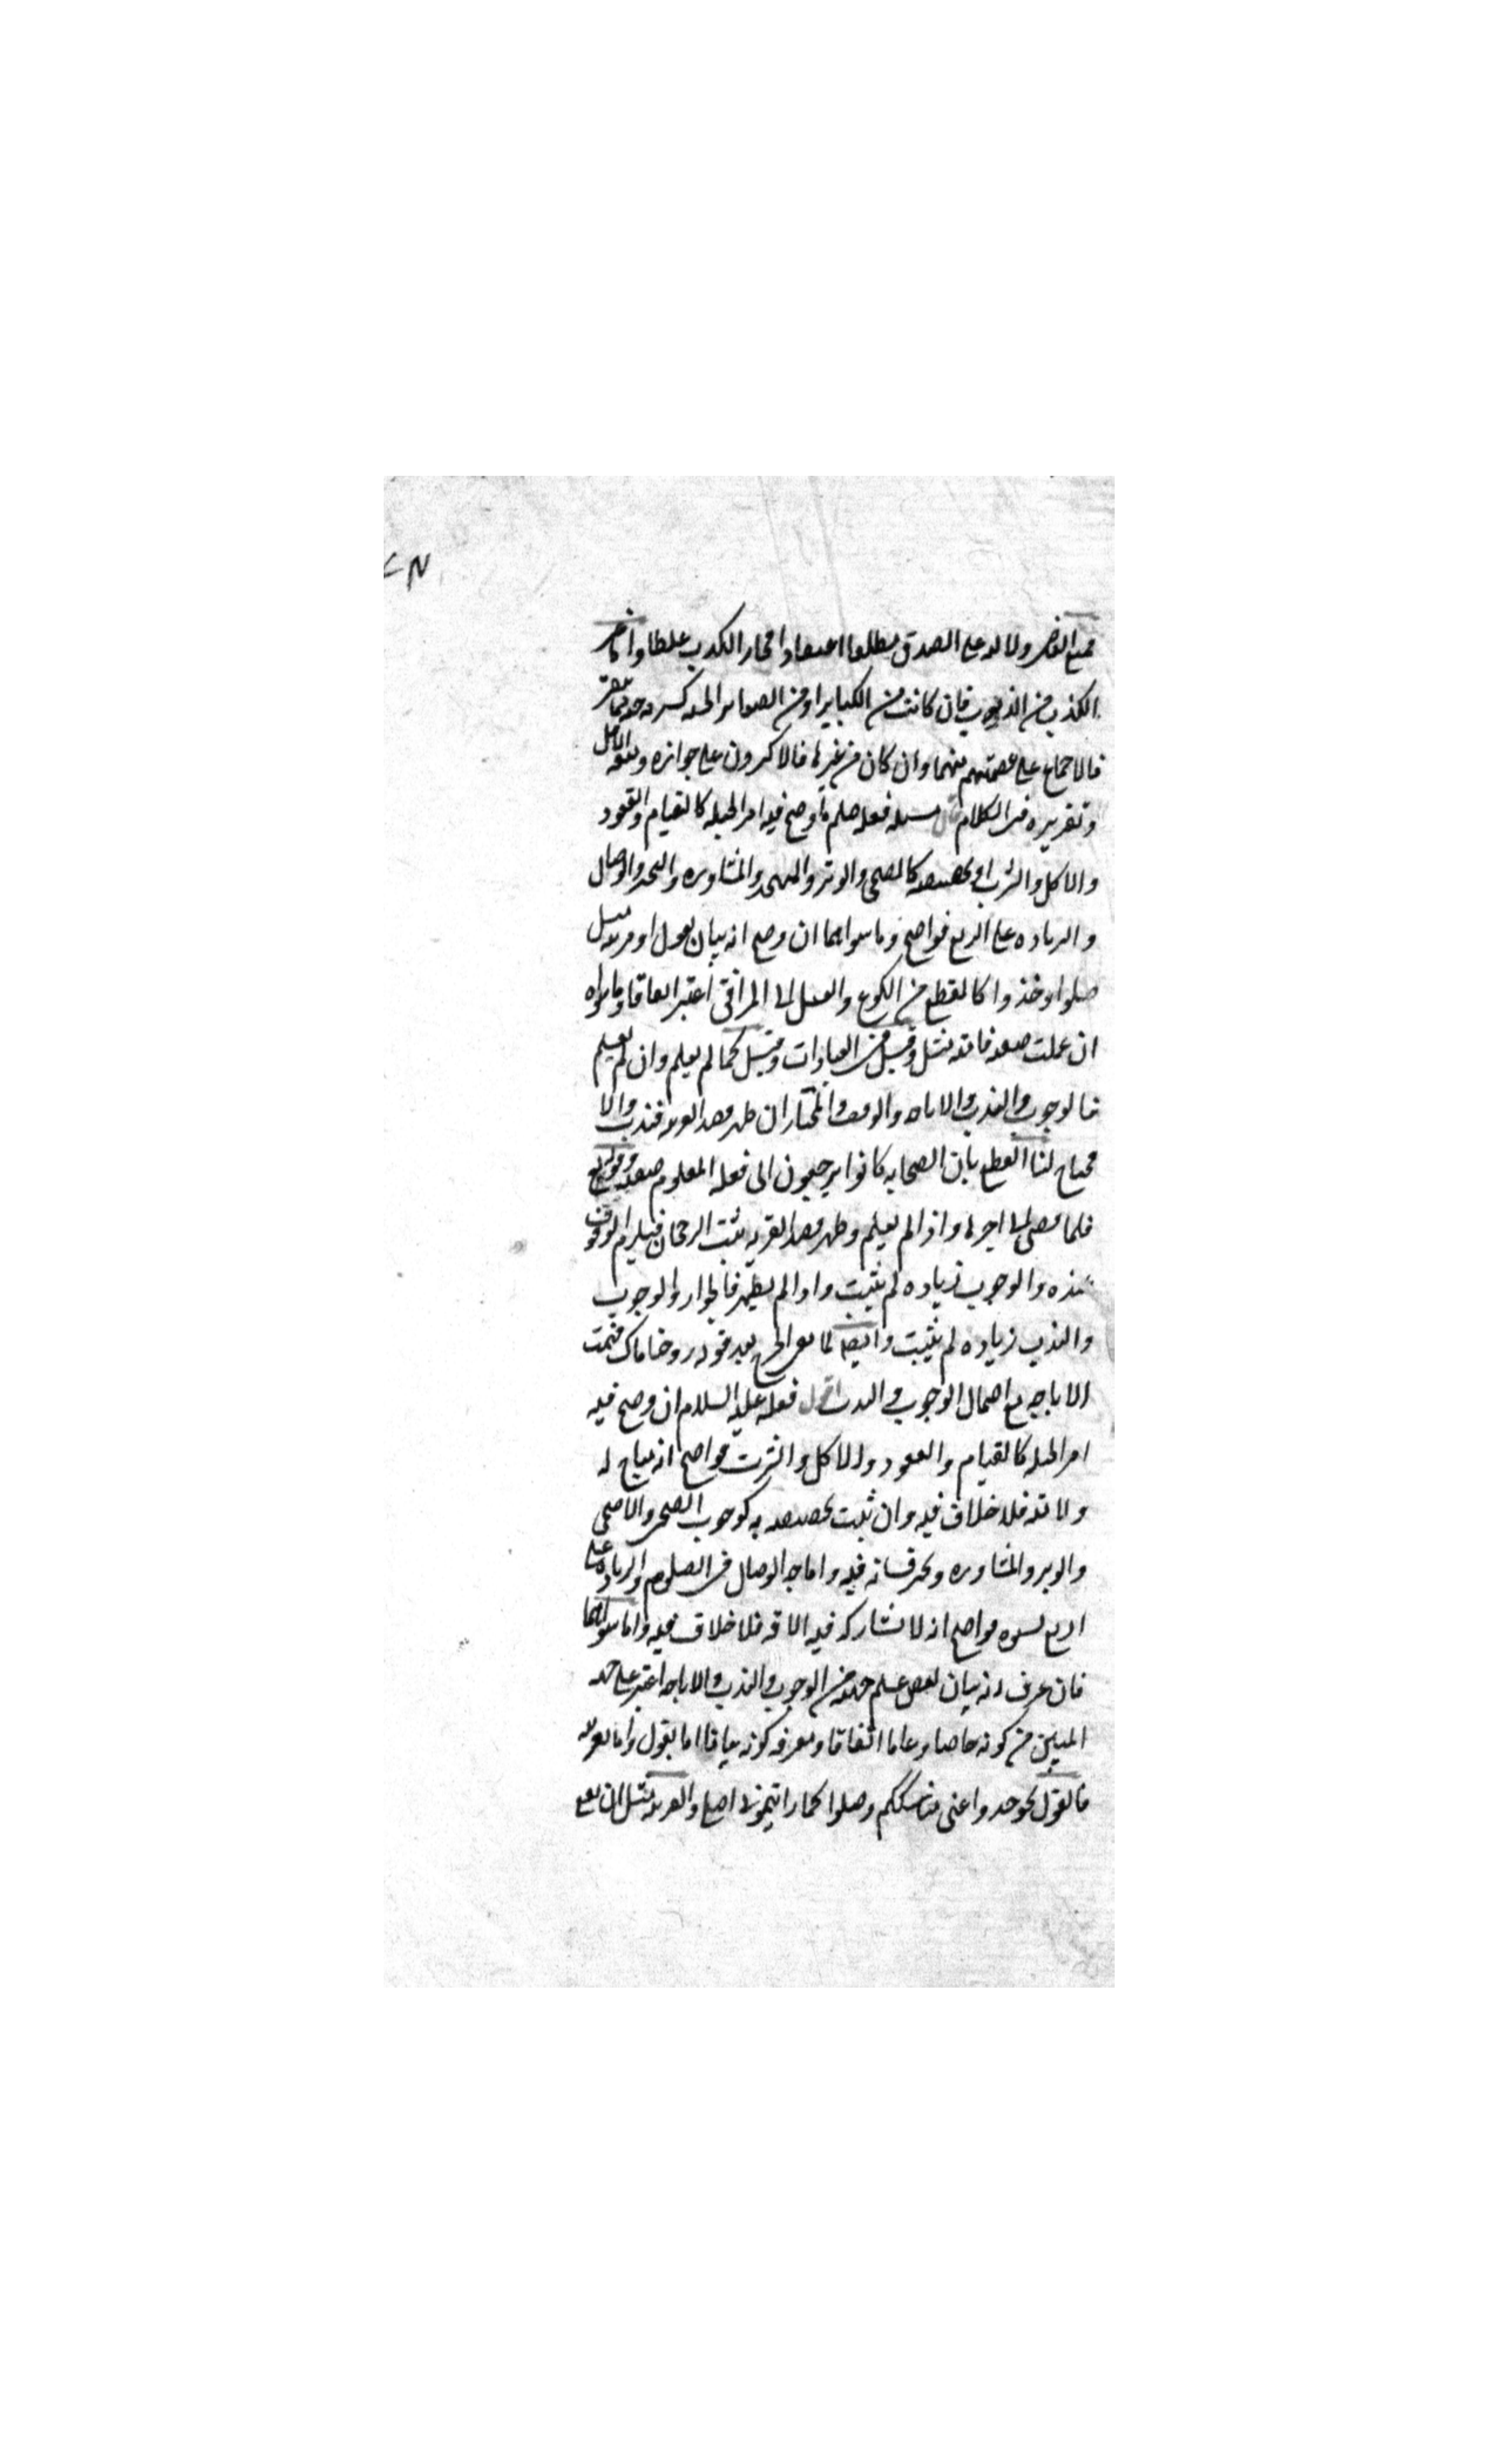 فمنع القاضي ودلالته على الصدق مطلقا اعتقادا فجاز الكذب غلطا واما غير
الكذب من الذنوب فان كانت من الكباير او من الصغاير الخسه كسرقه حبه
فالاجماع على عصمتهم منها وان كان من غيرها فالاكثرون على جوازه
وتقريره في الكلام قال مسئله فعله صلعم ما وضح فيه امر الجبله كالقيام والقعود
والاكل والشرب او تخصيصه كالضحى والوتر والتهجد والمشاوره والتخيير والوصال
والزياده على اربع فواضح وما سواهما ان وضح انه بيان بقول او قرينه مثل
صلوا وخذوا وكالقطع من الكوع والغسل الى المرافق اعتبر اتفاقا وما سواه
ان علمت صفته فامته مثله وقيل في العبادات وقيل كما لم يعلم وان لم يعلم
فالوجوب والندب والاباحه والوقف والمختار ان ظهر قصد القربه فندب والا
فمباح لنا القطع بان الصحابه كانوا يرجعون الى فعله المعلوم صفته وقوله
فلما قضى الى اخرها واذا لم يعلم وظهر قصد القربه ثبت الرجحان فيلزم الوقوف
عنده والوجوب زياده لم يثبت واذا لم يظهر فالجواز والوجوب
والندب زياده لم يثبت وايضا لما نفى الحرج بعد قوله زوجناكها فهمت
الاباحه مع احتمال الوجوب والندب اقول فعله عليه السلام ان وضح فيه
امر الجبله كالقيام والقعود والاكل والشرب فواضح انه مباح له
ولامته فلا خلاف فيه وان ثبت تخصيصه به كوجوب الضحى والاضحى
والوتر والمشاوره وتخيير نسائه فيه واباحه الوصال في الصوم والزياده على
اربع نسوه فواضح انه لا تشاركه فيه الامه فلا خلاف فيه واما ما سواهما
فان عرف انه بيان لنص علم جهته من الوجوب والندب والاباحه اعتبر على جهه
المبين من كونه خاصا وعاما اتفاقا ومعرفه كونه بيانا اما بقول واما بقرينه
فالقول نحو خذوا عني مناسككم وصلوا كما رايتموني اصلي والقرينه مثل ان يقع